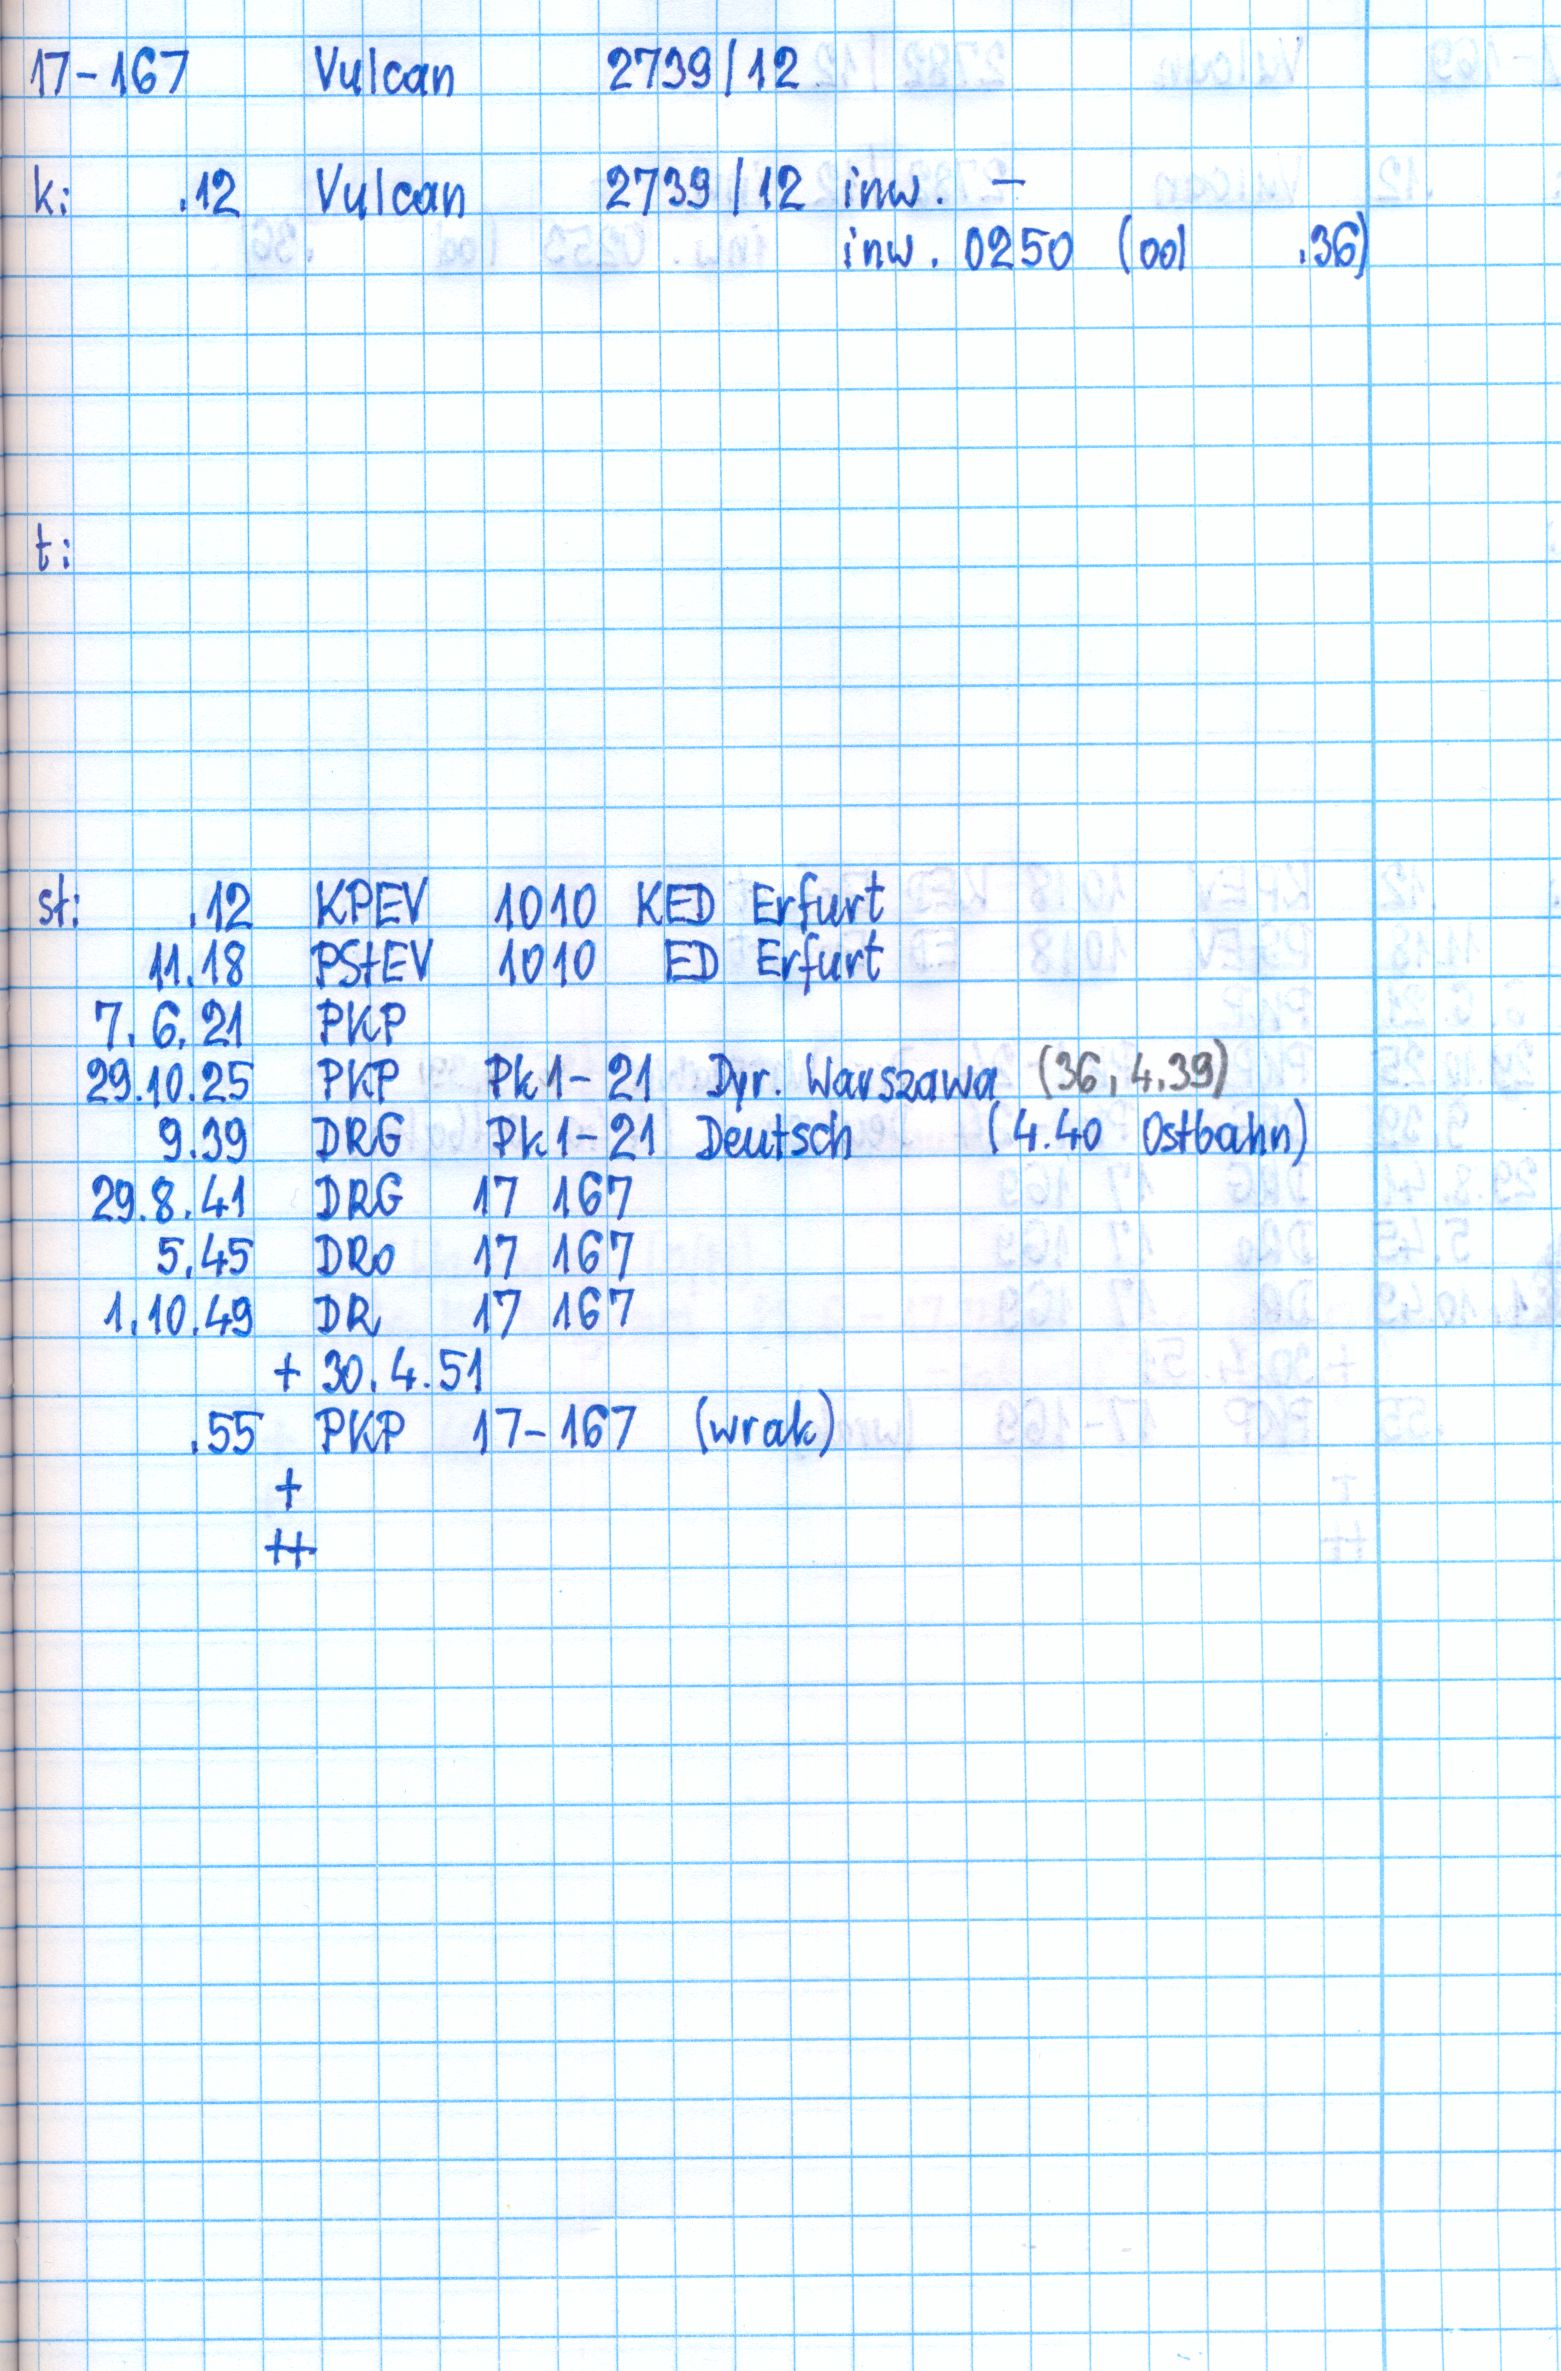 17-167 Vulcan 2739/12
k: .12 Vulcan 2739/12 inw. –
inw. 0250 (od .36)
t:
st: .12 KPEV 1010 KED Erfurt
11.18 PStEV 1010 ED Erfurt
7.6.21 PKP
29.10.25 PKP Pk1-21 Dyr. Warszawa (36, 4.39)
9.39 DRG Pk1-21 Deutsch (4.40 Ostbahn)
29.8.41 DRG 17 167
5.45 DRo 17 167
1.10.49 DR 17 167
+ 30.4.51
.55 PKP 17-167 (wrak)
+
++